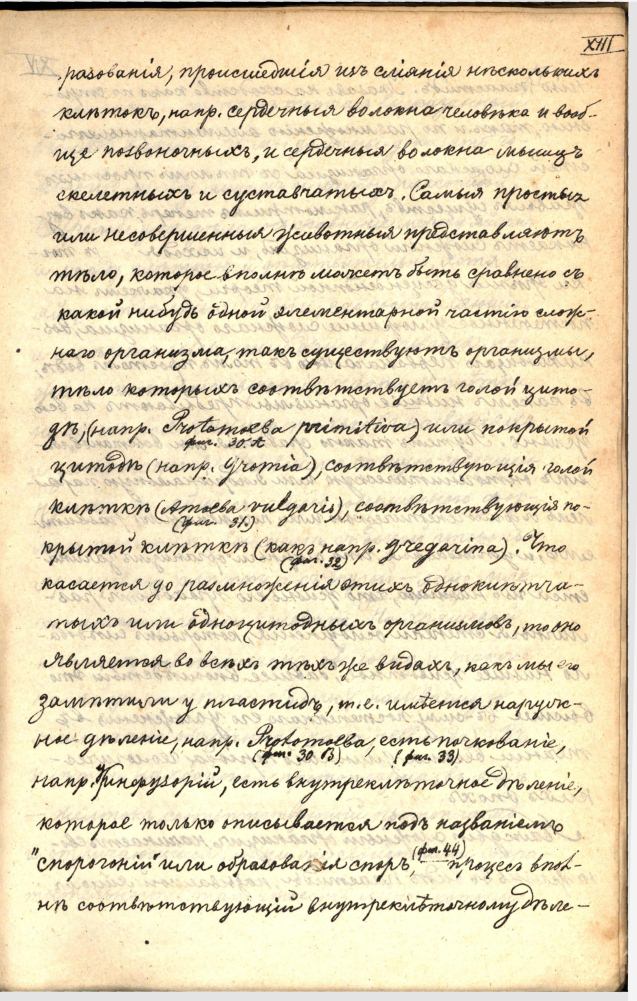 XIII
разованія, происшедшія изъ сліянія нѣсколькихъ
клѣтокъ, напр. сердечныя волокна человѣка и вооб-
ще позвоночныхъ, и сердечныя волокна мышцъ
скелетныхъ и суставчатыхъ. Самыя простыя
или несовершенныя животныя представляютъ
тѣло, которое вполнѣ можетъ быть сравнено съ
какой нибудь одной элементарной частію слож-
наго организма, такъ существуютъ организмы,
тѣло которыхъ соотвѣтствуетъ голой цито-
дѣ, (напр. Protomoeba primitiva) или покрытой
фиг. 30 А
цитодѣ (напр. Gromia), соотвѣтствующія голой
клѣткѣ (Amoeba vulgaris), соотвѣтствующія по-
(фиг. 31.)
крытой клѣткѣ (какъ напр. Gregarina). Что
(фиг. 32)
касается до размноженія этихъ одноклѣтча-
тыхъ или одноцитодныхъ организмовъ, то оно
является во всѣхъ тѣхъ же видахъ, какъ мы его
замѣтили у пластидъ, т.е. имѣется наруж-
ное дѣленіе, напр. Protomoeba, есть почкованіе,
(фиг. 30 В) (фиг. 33)
напр. у инфузорій, есть внутреклѣточное дѣленіе,
которое только описывается подъ названіемъ
"спорогоній" или образованія споръ, процесъ впол-
(фиг. 44)
нѣ соотвѣтствующій внутреклѣточному дѣле-